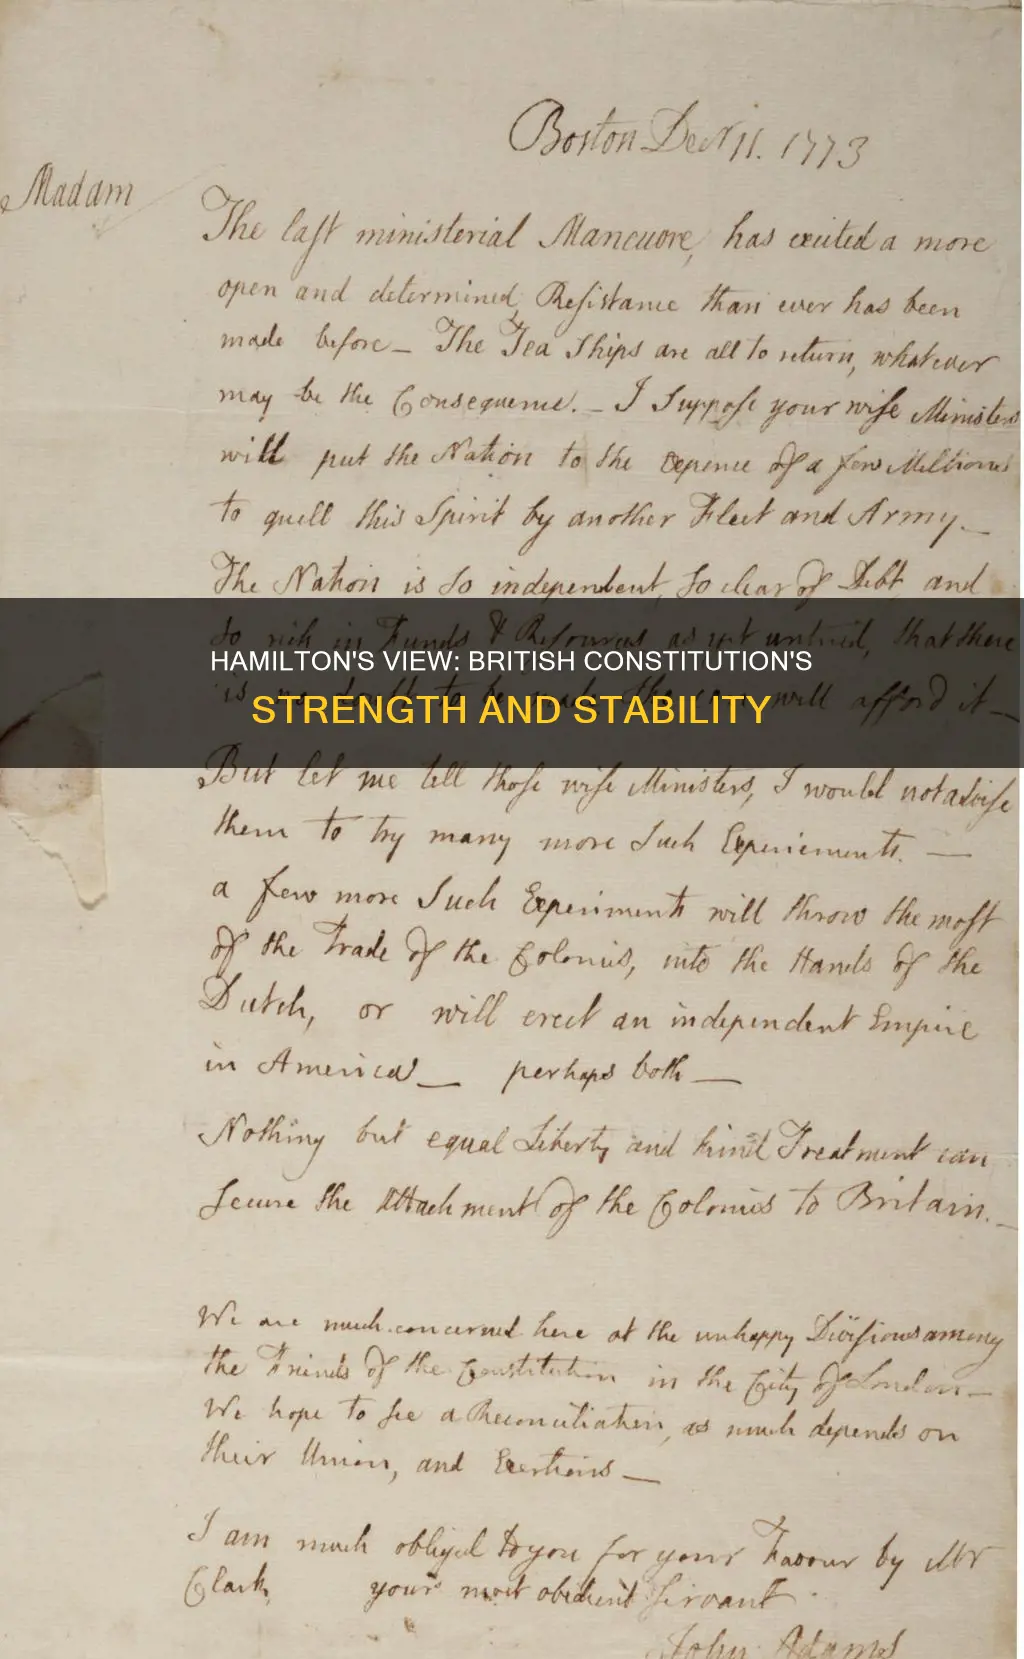 Boston Decr 11. 1773
Madam
The last ministerial Maneuvre, has excited a more
open and determined Resistance than ever has been
made before — The Tea Ships are all to return, whatever
may be the Consequence. — I Suppose your wise Ministers
will put the Nation to the expence of a few Millions
to quell this Spirit by another Fleet and Army. —
The Nation is so independent, so clear of Debt, and
so rich in Funds & Resources as yet untried, that there
HAMILTON'S VIEW: BRITISH CONSTITUTION'S
is no doubt to be made will afford it —
STRENGTH AND STABILITY
But let me tell those wise Ministers, I would not advise
them to try many more Such Experiments. —
a few more Such Experiments will throw the most
of the Trade of the Colonies, into the Hands of the
Dutch, or will erect an independent Empire
in America — perhaps both —
Nothing but equal Liberty and kind Treatment can
secure the Attachment of the Colonies to Britain. —
We are much concerned here at the unhappy Divisions among
the Friends of the Constitution in the City of London —
We hope to see a Reconciliation, as much depends on
their Union, and Exertions —
I am much obliged to you for your Favour by Mr
Clark, your most obedient Servant
John Adams